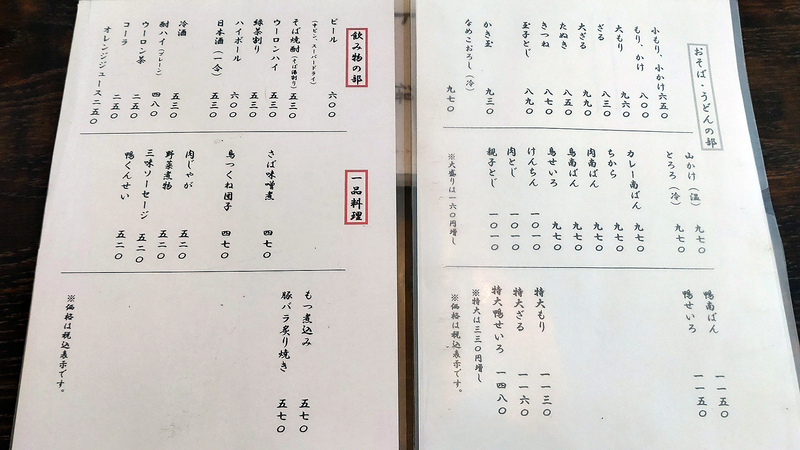 おそば・うどんの部
小もり、小かけ 六五〇
もり、かけ 八〇〇
大もり 九六〇
ざる 八三〇
大ざる 九九〇
たぬき 八五〇
きつね 八七〇
玉子とじ 八九〇
かき玉 九三〇
なめこおろし(冷) 九七〇
山かけ(温) 九七〇
とろろ(冷) 九七〇
カレー南ばん 九七〇
ちから 九七〇
肉南ばん 九七〇
鳥南ばん 九七〇
鳥せいろ 九七〇
けんちん 一〇一〇
肉とじ 一〇一〇
親子とじ 一〇一〇
※大盛りは一六〇円増し
鴨南ばん 一一五〇
鴨せいろ 一一五〇
特大もり 一一三〇
特大ざる 一一六〇
特大鴨せいろ 一四八〇
※特大は三三〇円増し
※価格は税込表示です。
飲み物の部
ビール 六〇〇
(中ビン、スーパードライ)
そば焼酎(そば湯割り) 五三〇
ウーロンハイ 五三〇
緑茶割り 五三〇
ハイボール 六〇〇
日本酒(一合) 五三〇
冷酒 五三〇
酎ハイ(プレーン) 四八〇
ウーロン茶 二五〇
コーラ 二五〇
オレンジジュース 二五〇
一品料理
さば味噌煮 四七〇
鳥つくね団子 四七〇
肉じゃが 五二〇
野菜煮物 五二〇
三味ソーセージ 五二〇
鴨くんせい 五二〇
もつ煮込み 五七〇
豚バラ炙り焼き 五七〇
※価格は税込表示です。